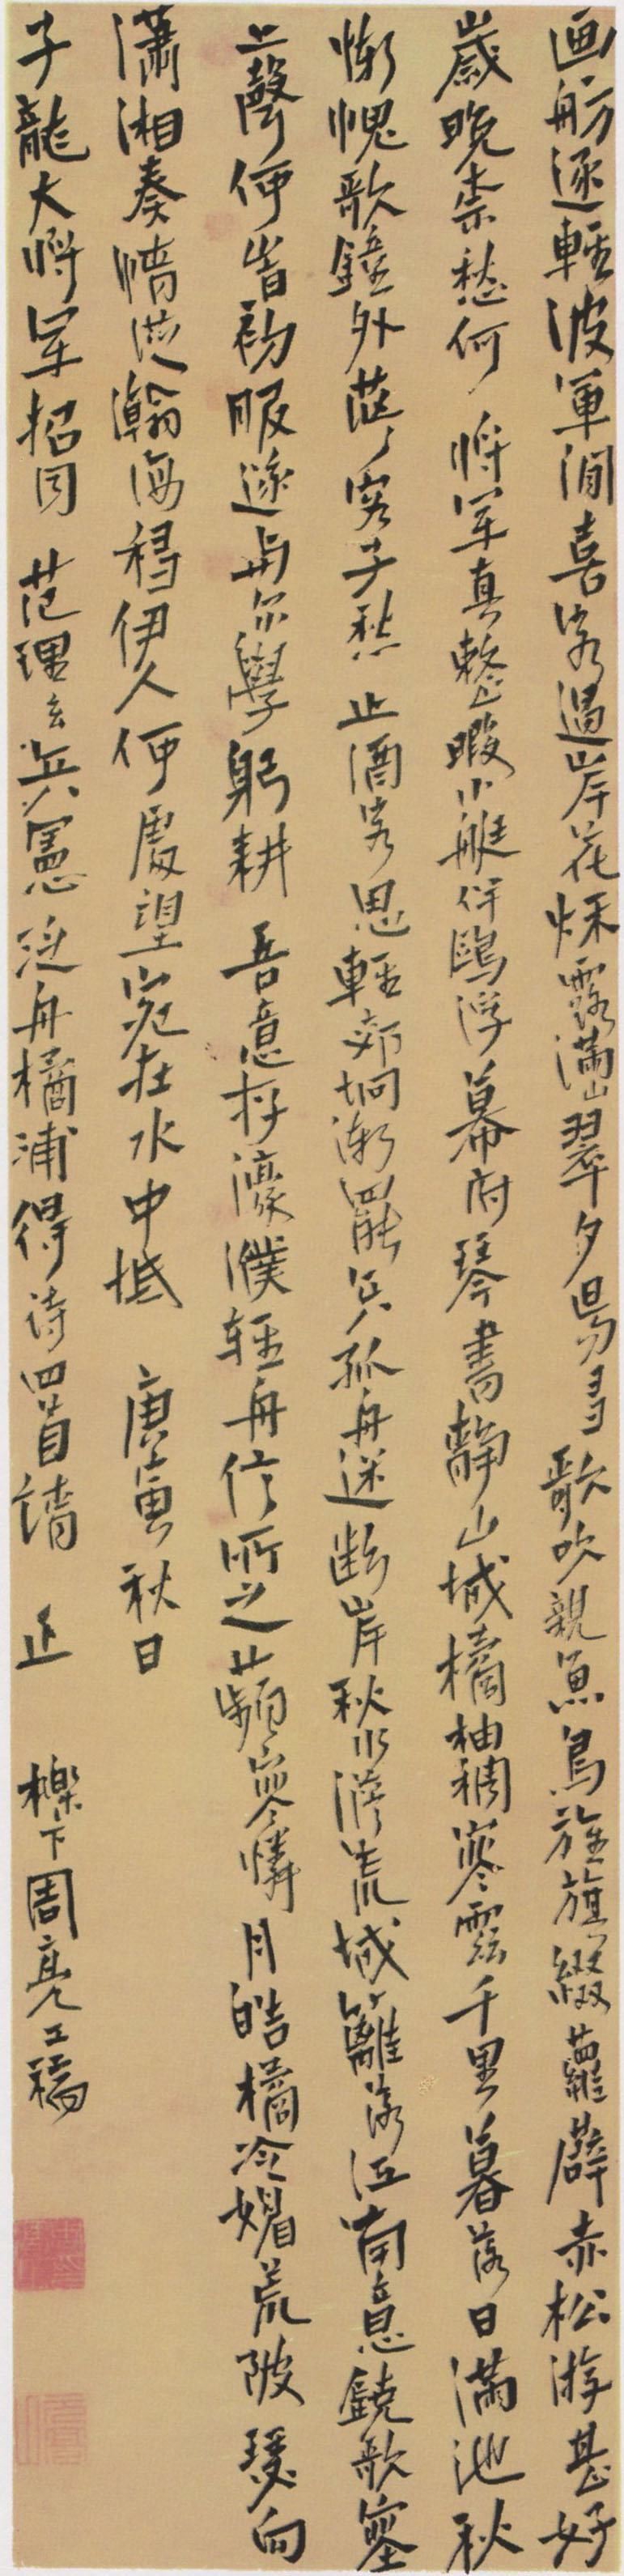 画舫逐輕波軍閒喜客過岸花烁露滿山翠夕昜多歌吹親魚鳥旌旗綴蘿薜赤松游甚好
歲晚柰愁何將軍真整暇小艇伴鷗浮幕府琴書靜山城橘柚稠寒雲千里暮落日滿池秋
慚愧歌鐘外茫々客子愁止酒客思輕郊坰漸罷兵孤舟迷斷岸秋水漲荒城籬落江南意鐃歌塞
上聲何當初服遂與尔學躬耕吾意存濠濮輕舟信所之蘋寒憐月皓橘冷媚荒陂瑟向
瀟湘奏情從瀚海移伊人何處望宛在水中坻庚寅秋日
子龍大將軍招同范理玄兵憲泛舟橘浦得詩四首請正櫟下周亮工稿